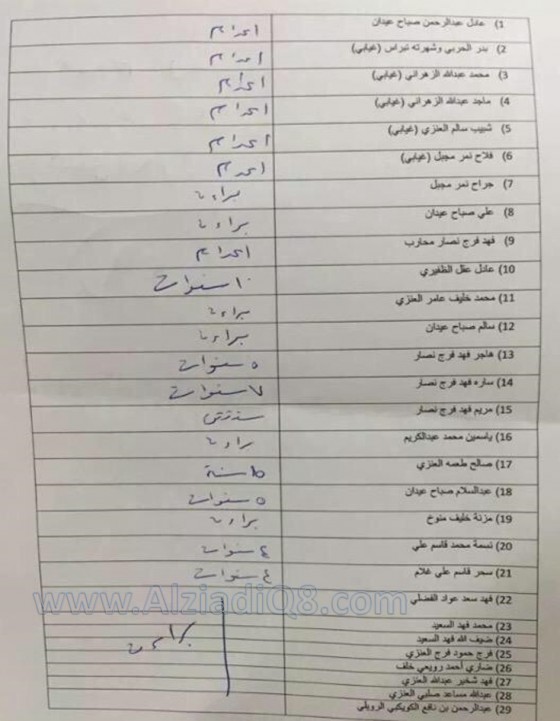 1) عادل عبدالرحمن صباح عيدان اعدام
2) بدر الحربي وشهرته نبراس (غيابي) اعدام
3) محمد عبدالله الزهراني (غيابي) اعدام
4) ماجد عبدالله الزهراني (غيابي) اعدام
5) شبيب سالم العنزي (غيابي) اعدام
6) فلاح نمر مجبل (غيابي) اعدام
7) جراح نمر مجبل براءة
8) علي صباح عيدان براءة
9) فهد فرج نصار محارب اعدام
10) عادل عقل الظفيري ١٠ سنوات
11) محمد خليف عامر العنزي براءة
12) سالم صباح عيدان براءة
13) هاجر فهد فرج نصار ٥ سنوات
14) ساره فهد فرج نصار ٧ سنوات
15) مريم فهد فرج نصار سنتين
16) ياسمين محمد عبدالكريم براءة
17) صالح طعمه العنزي ١٥ سنة
18) عبدالسلام صباح عيدان ٥ سنوات
19) مزنة خليف منوخ براءة
20) نسمة محمد قاسم علي ٤ سنوات
21) سحر قاسم علي غلام ٤ سنوات
22) فهد سعد عواد الفضلي
www.AlziadiQ8.com
23) محمد فهد السعيد
24) ضيف الله فهد السعيد
براءة
25) فرج حمود فرج العنزي
26) ضاري أحمد رويعي خلف
27) فهد شخير عبدالله العنزي
28) عبدالله مساعد صلبي العنزي
29) عبدالرحمن بن نافع الكويكبي الرويلي